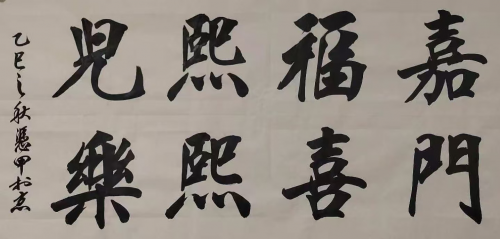 嘉門
福喜
熙熙
兒樂
乙巳之秋甲於京